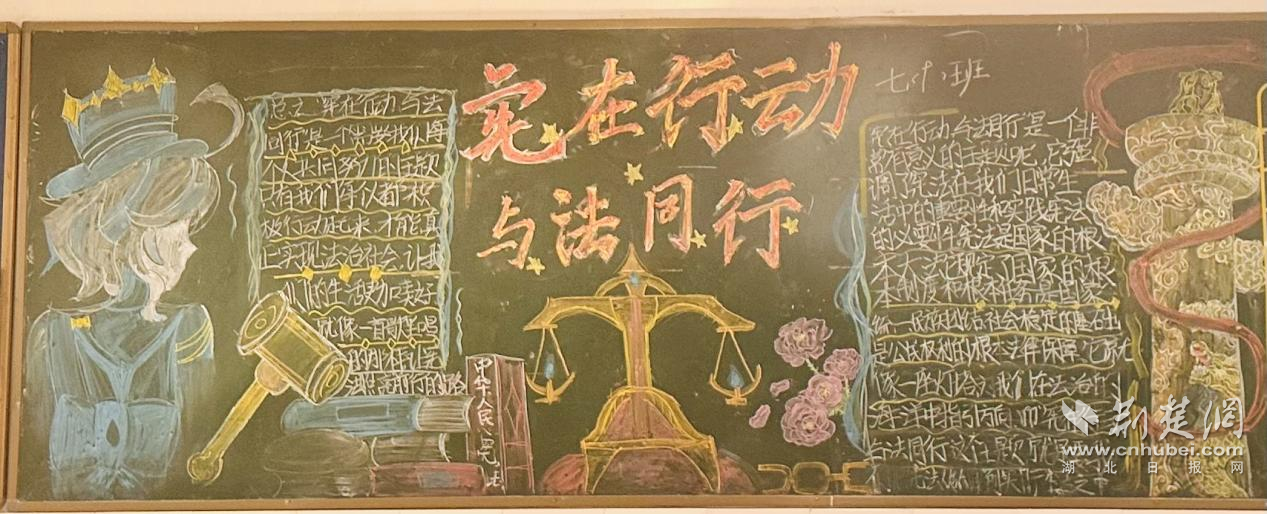 宪在行动
与法同行
七(十)班
总之,宪在行动与法
同行是一个
个人共同参与的主题
只有我们每个人都积
极行动起来,才能真
正实现法治社会,让我
们的生活更加美好
就像一首歌里唱
那样让
法前行的路
中华人民
宪在行动与法同行是一个非
常有意义的主题呢,它强
调宪法在我们日常生
活中的重要性和实践宪法
的必要性宪法是国家的根
本大法规定了国家的根
本制度和根本任务是国家
统一民族团结社会稳定的基石出
是公民权利的根本法律保障它就
像一座灯塔,我们在法治的
海洋中指方向而宪
与法同行这个主题
荆楚网
www.cnhubei.com
湖北日报网